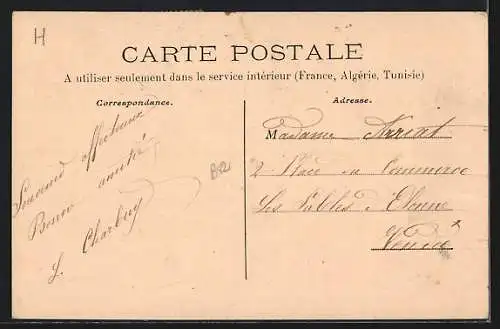 H
CARTE POSTALE
A utiliser seulement dans le service intérieur (France, Algérie, Tunisie)
Correspondance.
Souvenir affectueux
Bonne amitié
L. Charbuy
B82
Adresse.
Madame
2 Rue du Commerce
Les Sables d'Olonne
Vendée